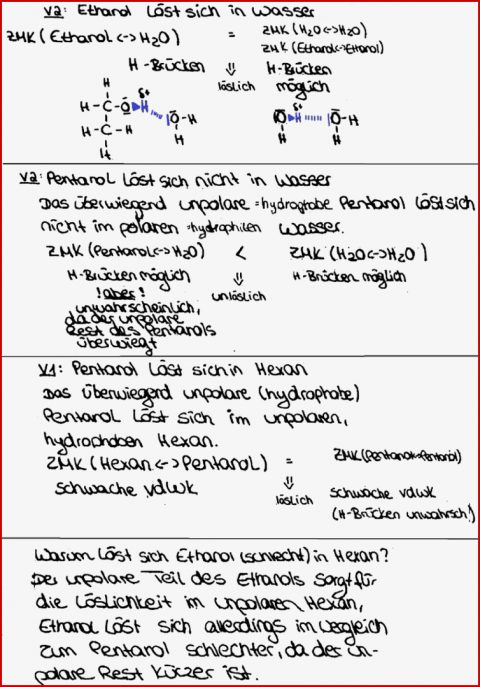 V2: Ethanol löst sich in Wasser
ZMK (Ethanol <-> H2O) = ZMK (H2O <-> H2O)
ZMK (Ethanol <-> Ethanol)
H-Brücken ⇓ H-Brücken
löslich möglich
H
H-C-O H δ+
H-C-H
H
O-H
H
δ+
O-H
H
O-H
H
V2: Pentanol löst sich nicht in Wasser
Das überwiegend unpolare =hydrophobe Pentanol löst sich
nicht im polaren =hydrophilen Wasser.
ZMK (Pentanol <-> H2O) < ZMK (H2O <-> H2O)
H-Brücken möglich ⇓ H-Brücken möglich
! aber ! unlöslich
unwahrscheinlich,
da der unpolare
Rest des Pentanols
überwiegt
V1: Pentanol löst sich in Hexan
Das überwiegend unpolare (hydrophobe)
Pentanol löst sich im unpolaren,
hydrophoben Hexan.
ZMK (Hexan <-> Pentanol) = ZMK (Pentanol <-> Pentanol)
schwache vdWK ⇓ löslich schwache vdWK
(H-Brücken unwahrsch.)
Warum löst sich Ethanol (schlecht) in Hexan?
Der unpolare Teil des Ethanols sorgt für
die Löslichkeit im unpolaren Hexan,
Ethanol löst sich allerdings im Vergleich
zum Pentanol schlechter, da der un-
polare Rest kürzer ist.